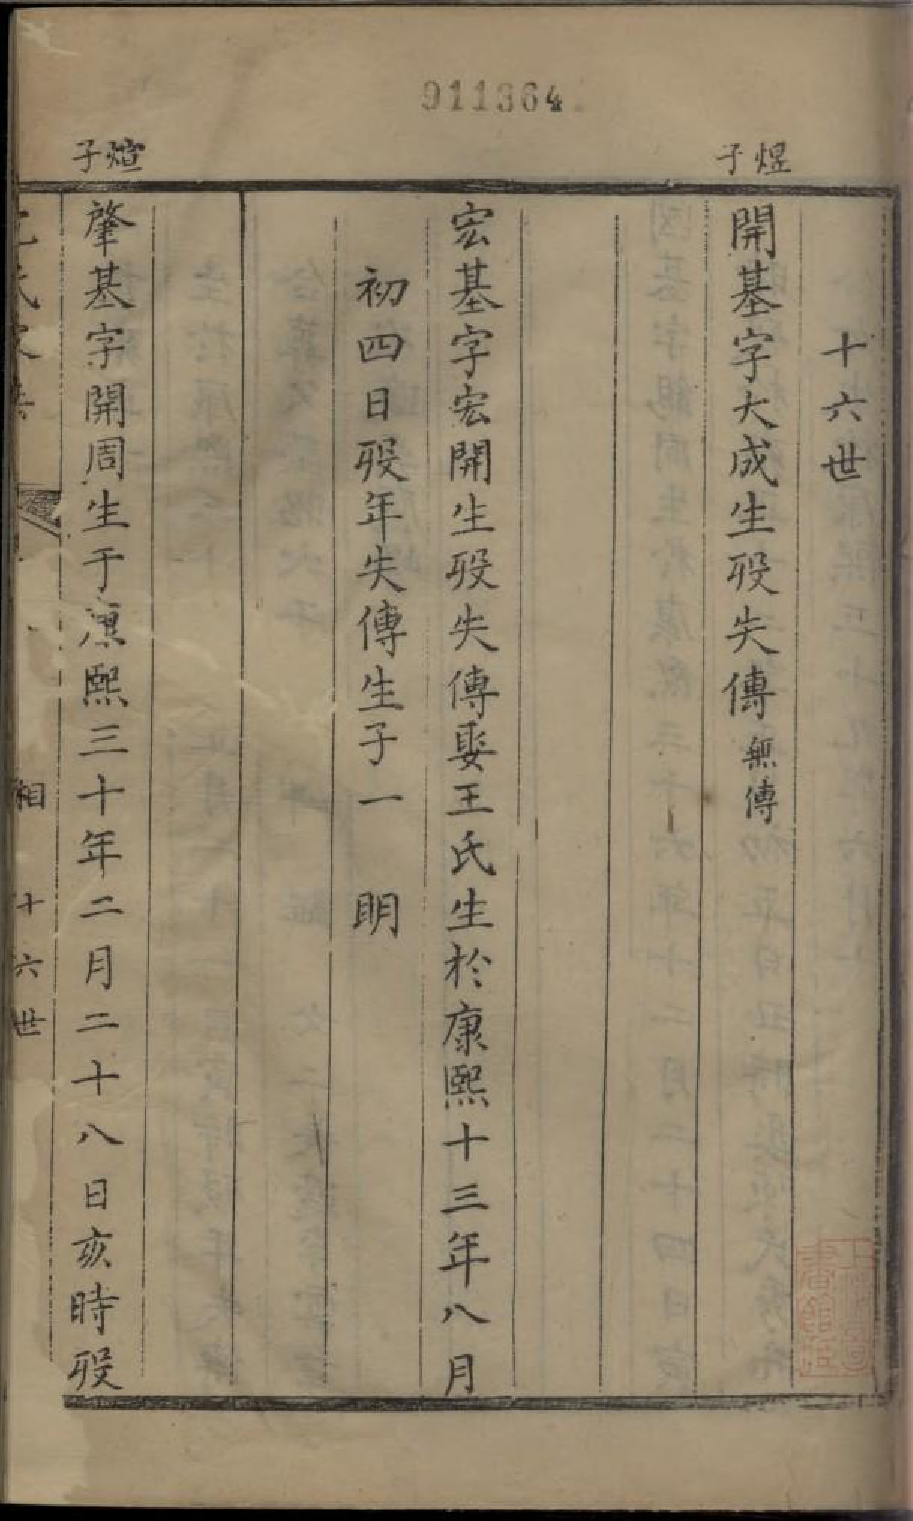 911364
煜子
十六世
開基字大成生歿失傳無傳
宏基字宏開生歿失傳娶王氏生於康熙十三年八月
初四日歿年失傳生子一 明
煊子
肇基字開周生于康熙三十年二月二十八日亥時歿
相 十六世